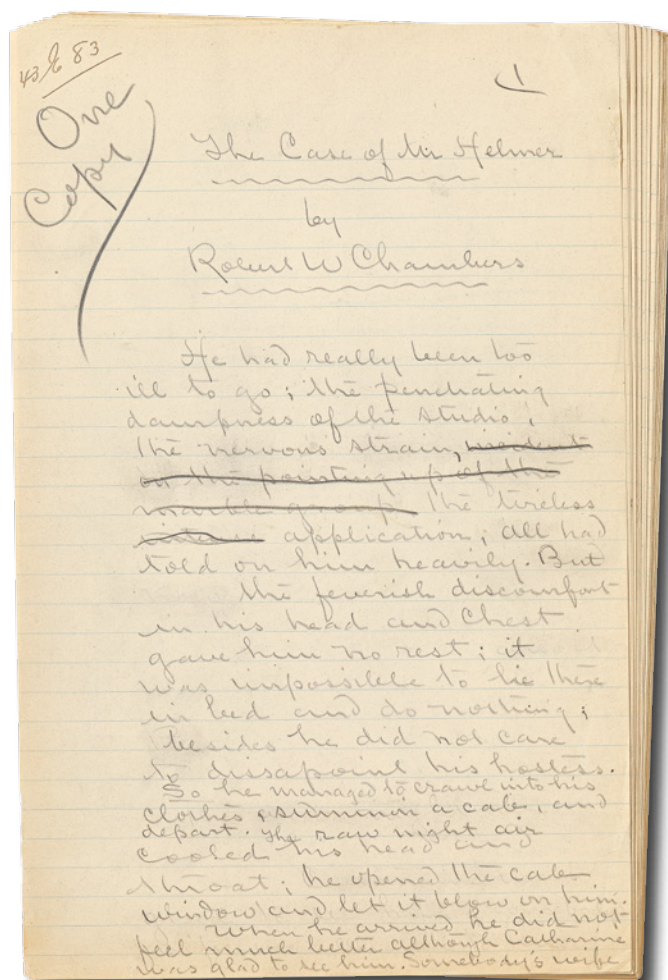 43 & 83
1
One
Copy
The Case of Mr Helmer
by
Robert W Chambers
He had really been too
ill to go; the penetrating
dampness of the studio,
the nervous strain, incident
on the pointing up of the
marble group, the tireless
application, all had
told on him heavily. But
the feverish discomfort
in his head and chest
gave him no rest; it
was impossible to lie there
in bed and do nothing;
besides he did not care
to dissapoint his hostess.
So he managed to crawl into his
clothes, summon a cab, and
depart. The raw night air
cooled his head and
throat; he opened the cab
window and let it blow on him.
When he arrived he did not
feel much better although Catharine
was glad to see him. Somebody's wife